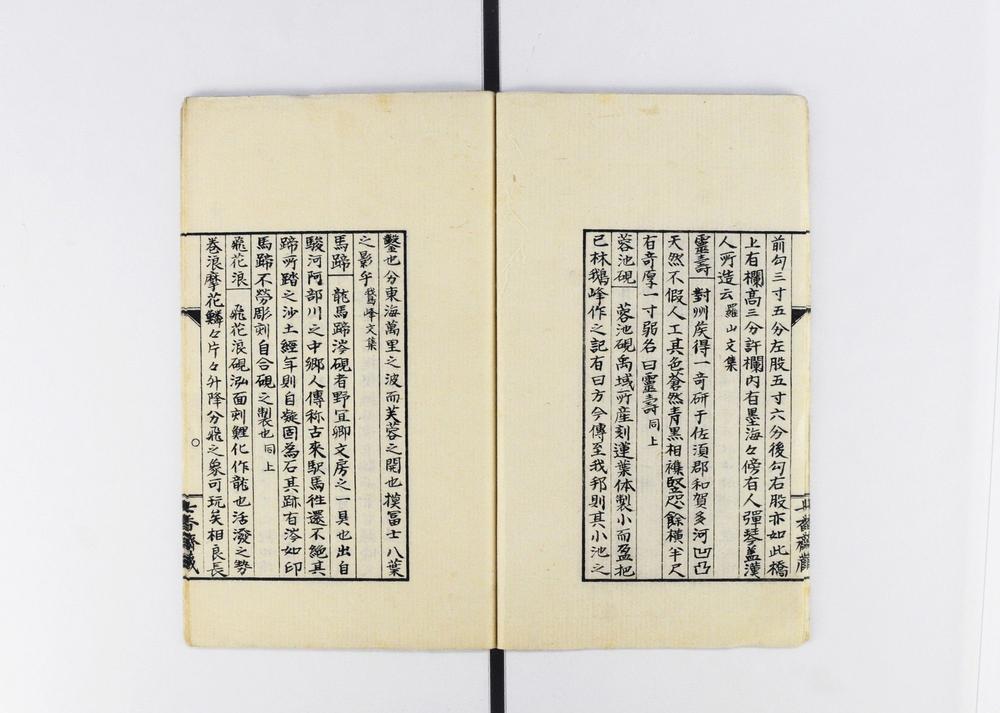 前勾三寸五分左股五寸六分後勾右股亦如此橋
上有欄高三分許欄内有墨海々傍有人彈琴蓋漢
人所造云羅山文集
靈壽 對州侯得一奇研于佐湏郡和賀多河凹凸
天然不假人工其色蒼然青黒相襍竪咫餘横半尺
有奇厚一寸弱名曰靈壽同上
蓉池硯 蓉池硯禹域所産刻蓮葉体製小而盈把
已林鵝峰作之記有曰方今傳至我邦則其小池之
鑿也分東海萬里之波而芙蓉之開也摸冨士八葉
之影乎鵞峰文集
馬蹄 龍馬蹄涔硯者野宜卿文房之一具也出自
駿河阿部川之中郷人傳称古來馭馬徃還不絶其
蹄所踏之沙土經年則自凝固為石其跡有涔如印
馬蹄不勞彫刻自合硯之製也同上
飛花浪 飛花浪硯泓面刻鯉化作龍也活溌之勢
巻浪摩花鱗々片々升降分飛之象可玩矣相良長